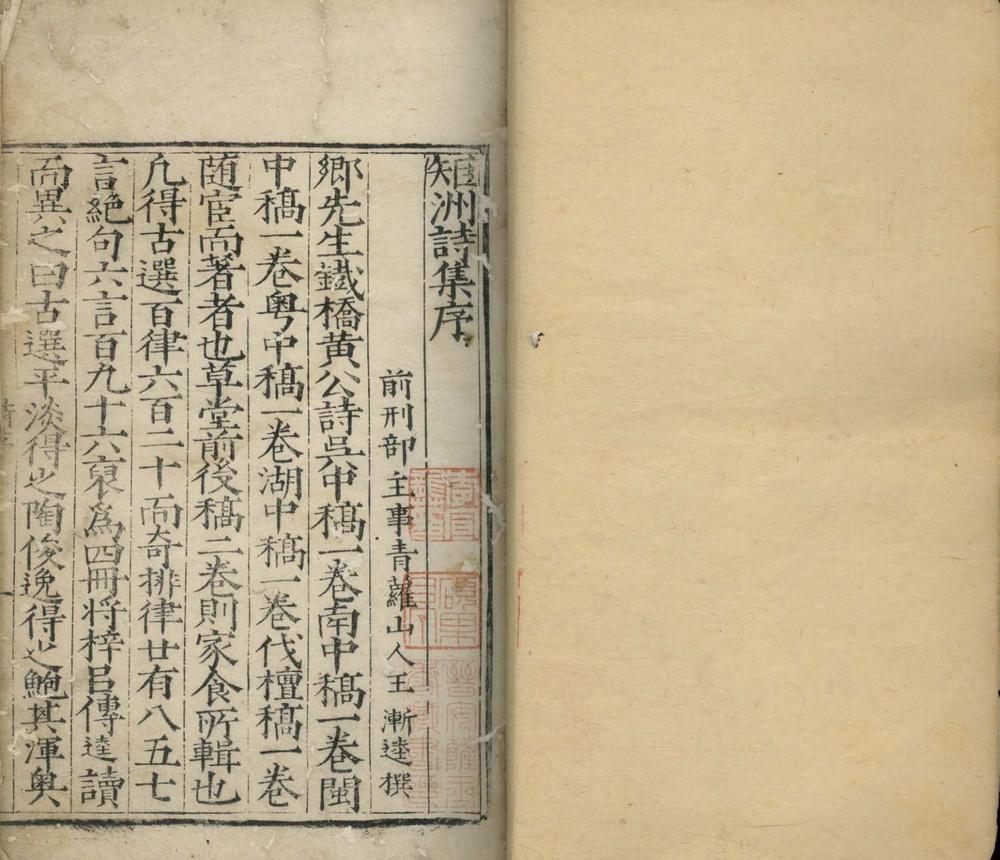 矩洲詩集序
前刑部主事青蘿山人王漸逵撰
鄉先生鐵橋黄公詩吳中稿一卷南中稿一卷閩
中稿一卷粤中稿一卷湖中稿一卷代檀稿一卷
随宦而著者也草堂前後稿二卷則家食所輯也
凡得古選百律六百二十而奇排律廿有八五七
言絶句六言百九十六裒爲四冊將梓㠯傳逵讀
而異之曰古選平淡得之陶俊逸得之鮑其渾奥